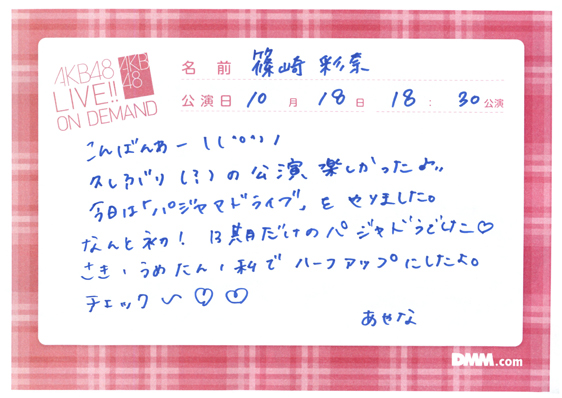 AKB48
LIVE!!
ON DEMAND
AKB
48
名前 篠崎 彩奈
公演日 10月 18日 18：30公演
こんばんあー\(\(^o^)/
久しぶり(?)の公演 楽しかったよ!!
今日は「パジャマドライブ」をやりました。
なんと初! 13期だけのパジャドラでした♡
さき、うめたん、私でハーフアップにしたよ。
チェック〜♡♡
あやな
DMM.com